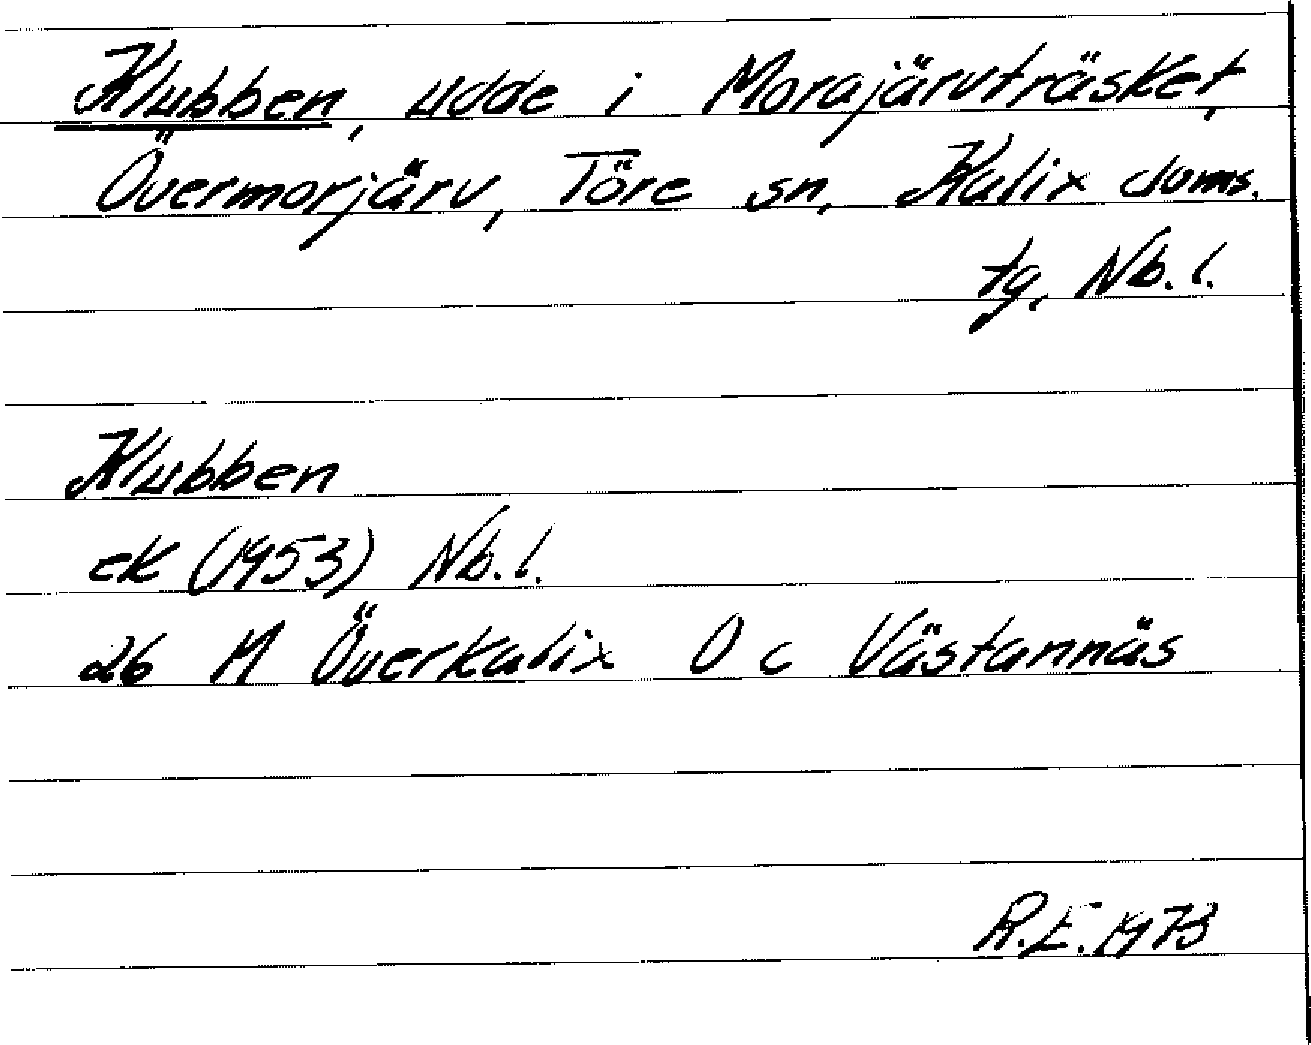 Klubben, udde i Morajärvträsket,
Övermorjärv, Töre sn, Kalix doms.
tg, Nb.l.
Klubben
ek (1953) Nb.l.
26 M Överkalix 0 c Västannäs
R.E. 1973